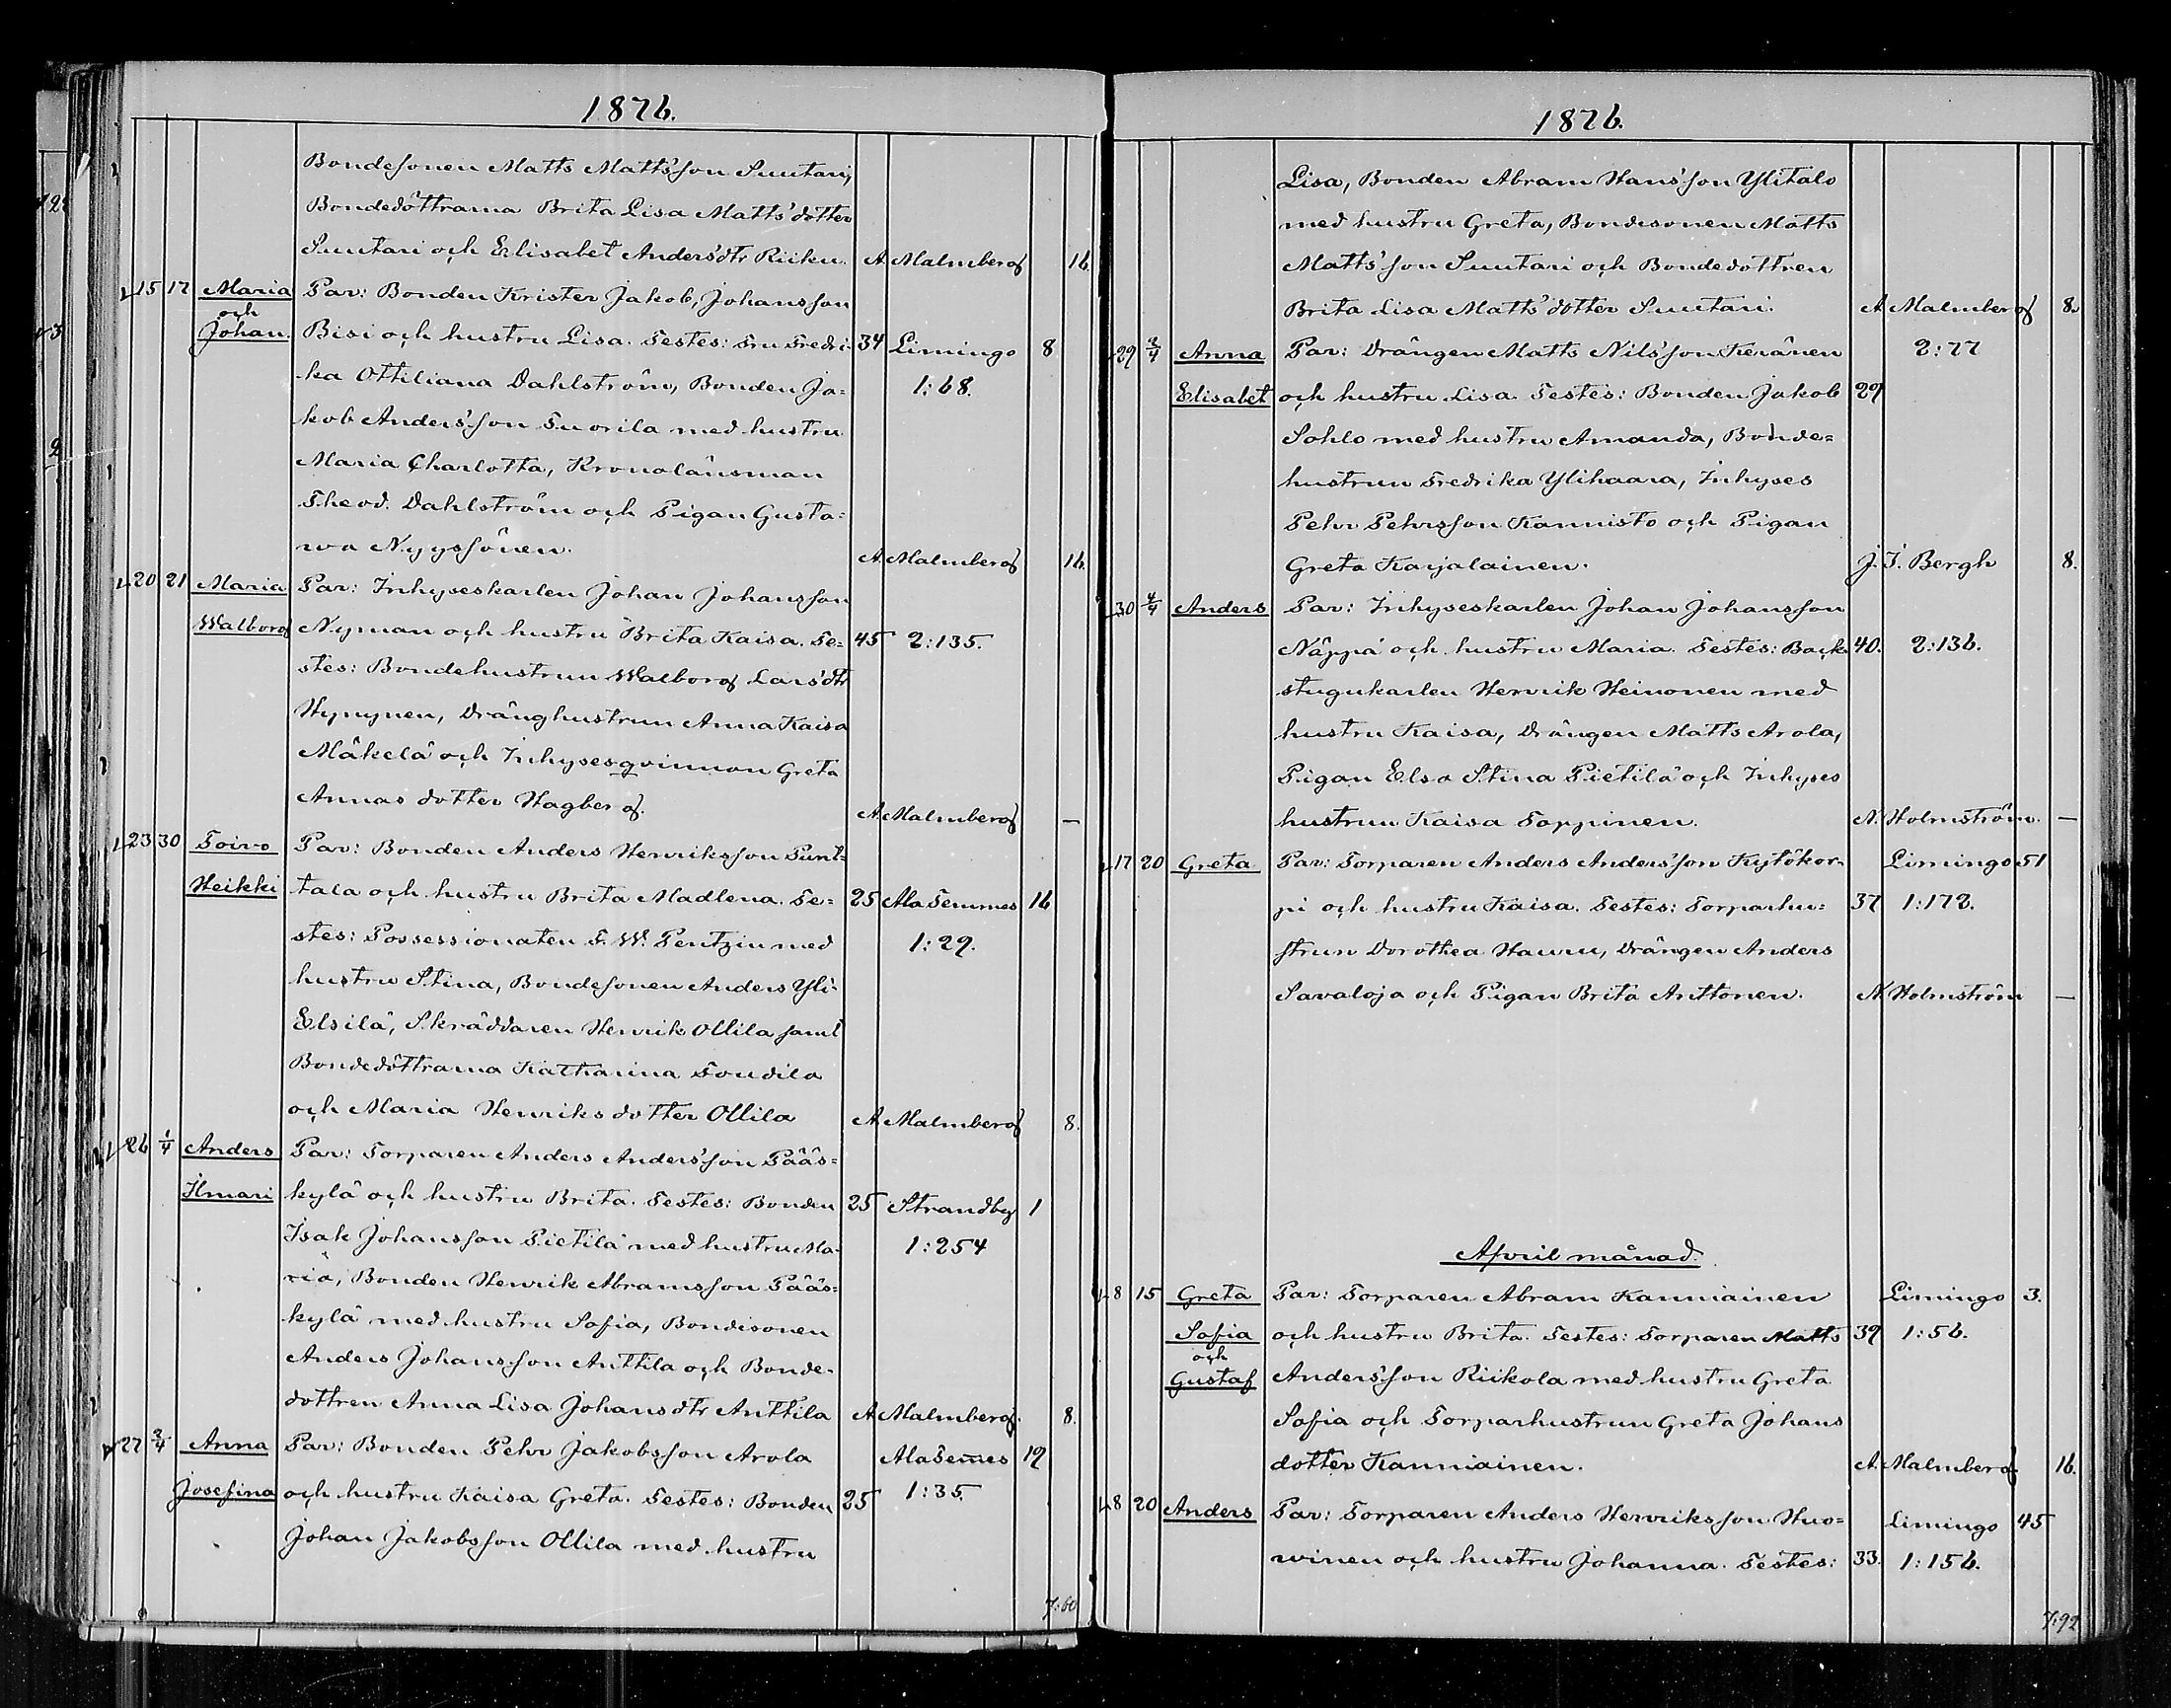 1876.
Bondesonen Matts Matts'son Suutari,
Bondedöttrarna Brita Lisa Matts'dotter
Suutari och Elisabet Anders'dtr Riiku. A. Malmberg 16.
15 17 Maria Par: Bonden Krister Jakob, Johansson
och
Johan. Bisi och hustru Lisa. Testes: Fru Fredri- 34 Limingo 8
ka Ottiliana Dahlström, Bonden Ja= 1:68.
kob Anders'son Tuorila med hustru
Maria Charlotta, Kronolänsman
Theod. Dahlström och Pigan Gusta=
wa Nyyssönen. A. Malmberg 16.
20 21 Maria Par: Inhyseskarlen Johan Johansson
Walborg Nyman och hustru Brita Kaisa. Te= 45 2:135.
stes: Bondehustrun Walborg Lars'dtr
Hynynen, Dränghustrun Anna Kaisa
Mäkelä och Inhysesqvinnan Greta
Annas dotter Hagberg. A. Malmberg —
23 30 Toivo Par: Bonden Anders Henriksson Punt=
Heikki tala och hustru Brita Madlena. Te= 25 Ala Temmes 16
stes: Possessionaten F. W. Pentzin med 1:29.
hustru Stina, Bondesonen Anders Yli-
Elsilä, Skräddaren Henrik Ollila samt
Bondedöttrarna Katharina Toudila
och Maria Henriksdotter Ollila A. Malmberg 8.
26 1/4 Anders Par: Torparen Anders Anders'son Pääs=
Ilmari kylä och hustru Brita. Testes: Bonden 25 Strandby 1
Isak Johansson Pietilä med hustru Ma- 1:254
ria, Bonden Henrik Abramsson Pääs=
kylä med hustru Sofia, Bondesonen
Anders Johansson Anttila och Bonde-
dottren Anna Lisa Johansdtr Anttila A. Malmberg. 8.
27 2/4 Anna Par: Bonden Pehr Jakobsson Arola Ala Tem̅es 19
Josefina och hustru Kaisa Greta. Testes: Bonden 25 1:35.
Johan Jakobsson Ollila med hustru
7:60
1876.
Lisa, Bonden Abram Hans'son Ylitalo
med hustru Greta, Bondesonen Matts
Matts'son Suutari och Bondedottren
Brita Lisa Matts'dotter Suutari. A. Malmberg 8.
29 2/4 Anna Par: Drängen Matts Nils'son Keränen 2:77
Elisabet och hustru Lisa. Testes: Bonden Jakob 29
Sohlo med hustru Amanda, Bonde=
hustrun Fredrika Ylihaara, Inhyses
Pehr Pehrsson Kannisto och Pigan
Greta Karjalainen. J. F. Bergh 8.
30 4/4 Anders Par: Inhyseskarlen Johan Johansson
Näppä och hustru Maria. Testes: Back 40. 2:136.
stugukarlen Henrik Heinonen med
hustru Kaisa, Drängen Matts Arola,
Pigan Elsa Stina Pietilä och Inhyses
hustrun Kaisa Toppinen. N. Holmström. —
17 20 Greta Par: Torparen Anders Anders'son Kytökor- Limingo 51
pi och hustru Kaisa. Testes: Torparhu= 37 1:172.
strun Dorothea Hauru, Drängen Anders
Savaloja och Pigan Brita Anttonen. N. Holmström —
April månad.
8 15 Greta Par: Torparen Abram Kanniainen Limingo 3.
Sofia och hustru Brita. Testes: Torparen Matts 39 1:56.
och
Gustaf Anders'son Riikola med hustru Greta
Sofia och Torparhustrun Greta Johans
dotter Kanniainen. A. Malmberg 16.
8 20 Anders Par: Torparen Anders Henriksson Huo= Limingo 45
winen och hustru Johanna. Testes: 33. 1:156.
7:92